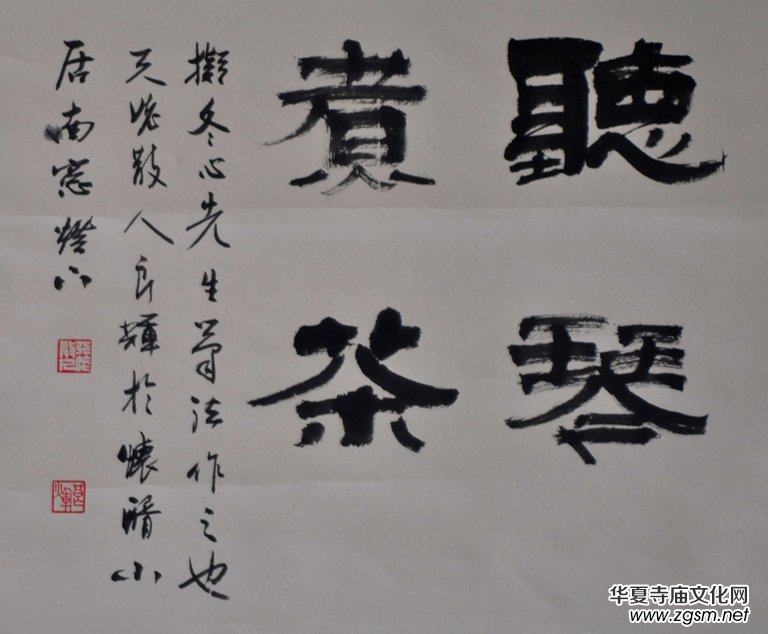 聽琴
煑茶
擬冬心先生筆法作之也
天池散人良輝於懷瞃小
居南窓燈下
华夏寺庙文化网
www.zgsm.net